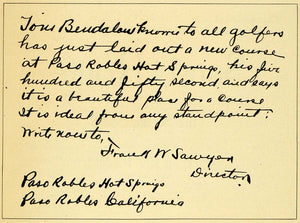 Tom Bendalow known to all golfers
has just laid out a new course
at Paso Robles Hot Springs, his five
hundred and fifty second, and says
it is a beautiful place for a course
It is ideal from any standpoint.
Write now to,
Frank W Sawyer
Director
Paso Robles Hot Springs
Paso Robles California